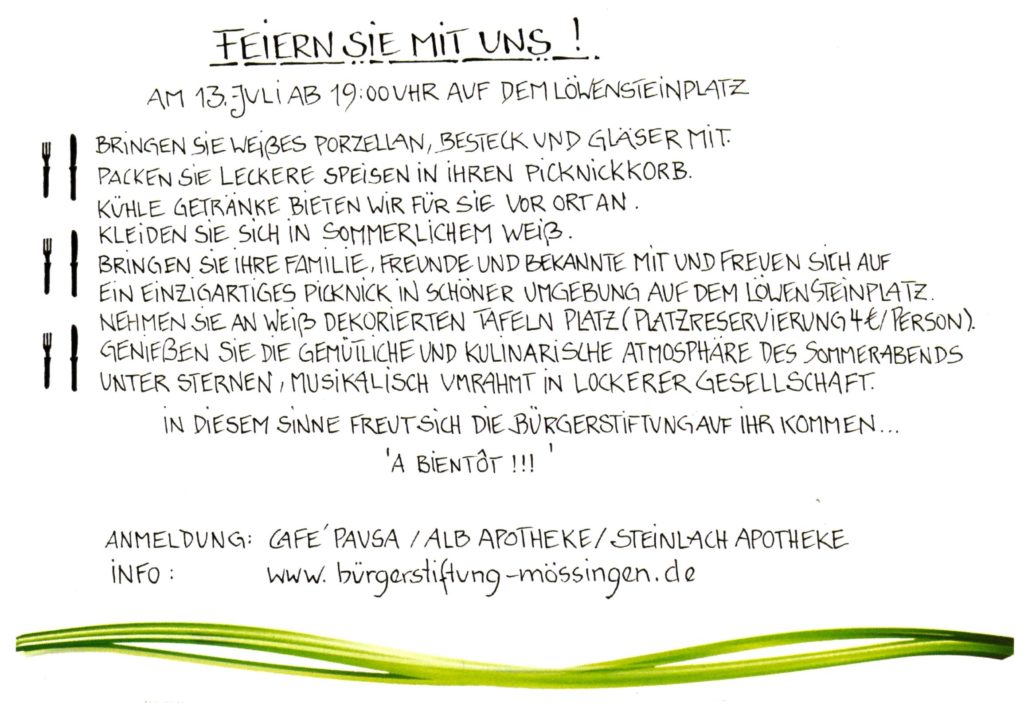 FEIERN SIE MIT UNS !
AM 13. JULI AB 19:00 UHR AUF DEM LÖWENSTEINPLATZ
BRINGEN SIE WEIßES PORZELLAN, BESTECK UND GLÄSER MIT.
PACKEN SIE LECKERE SPEISEN IN IHREN PICKNICKKORB.
KÜHLE GETRÄNKE BIETEN WIR FÜR SIE VOR ORT AN.
KLEIDEN SIE SICH IN SOMMERLICHEM WEIß.
BRINGEN SIE IHRE FAMILIE, FREUNDE UND BEKANNTE MIT UND FREUEN SICH AUF
EIN EINZIGARTIGES PICKNICK IN SCHÖNER UMGEBUNG AUF DEM LÖWENSTEINPLATZ.
NEHMEN SIE AN WEIß DEKORIERTEN TAFELN PLATZ (PLATZRESERVIERUNG 4€/PERSON).
GENIEßEN SIE DIE GEMÜTLICHE UND KULINARISCHE ATMOSPHÄRE DES SOMMERABENDS
UNTER STERNEN, MUSIKALISCH UMRAHMT IN LOCKERER GESELLSCHAFT.
IN DIESEM SINNE FREUT SICH DIE BÜRGERSTIFTUNG AUF IHR KOMMEN...
'A BIENTÔT !!! '
ANMELDUNG: CAFE´ PAUSA / ALB APOTHEKE / STEINLACH APOTHEKE
INFO : www.bürgerstiftung-mössingen.de